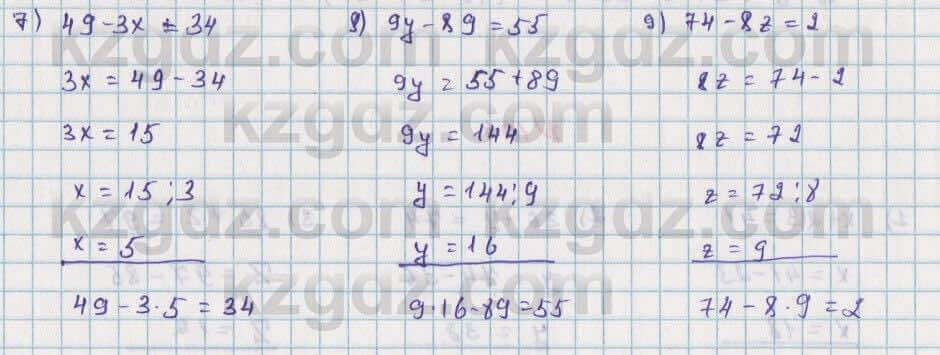 7) 49-3x = 34
3x = 49-34
3x = 15
x = 15:3
x = 5
49-3·5 = 34
8) 9y-89 = 55
9y = 55+89
9y = 144
y = 144:9
y = 16
9·16-89=55
9) 74-8z = 2
8z = 74-2
8z = 72
z = 72:8
z = 9
74-8·9=2
kzgdz.com
kzgdz.com
kzgdz.com
kzgdz.com